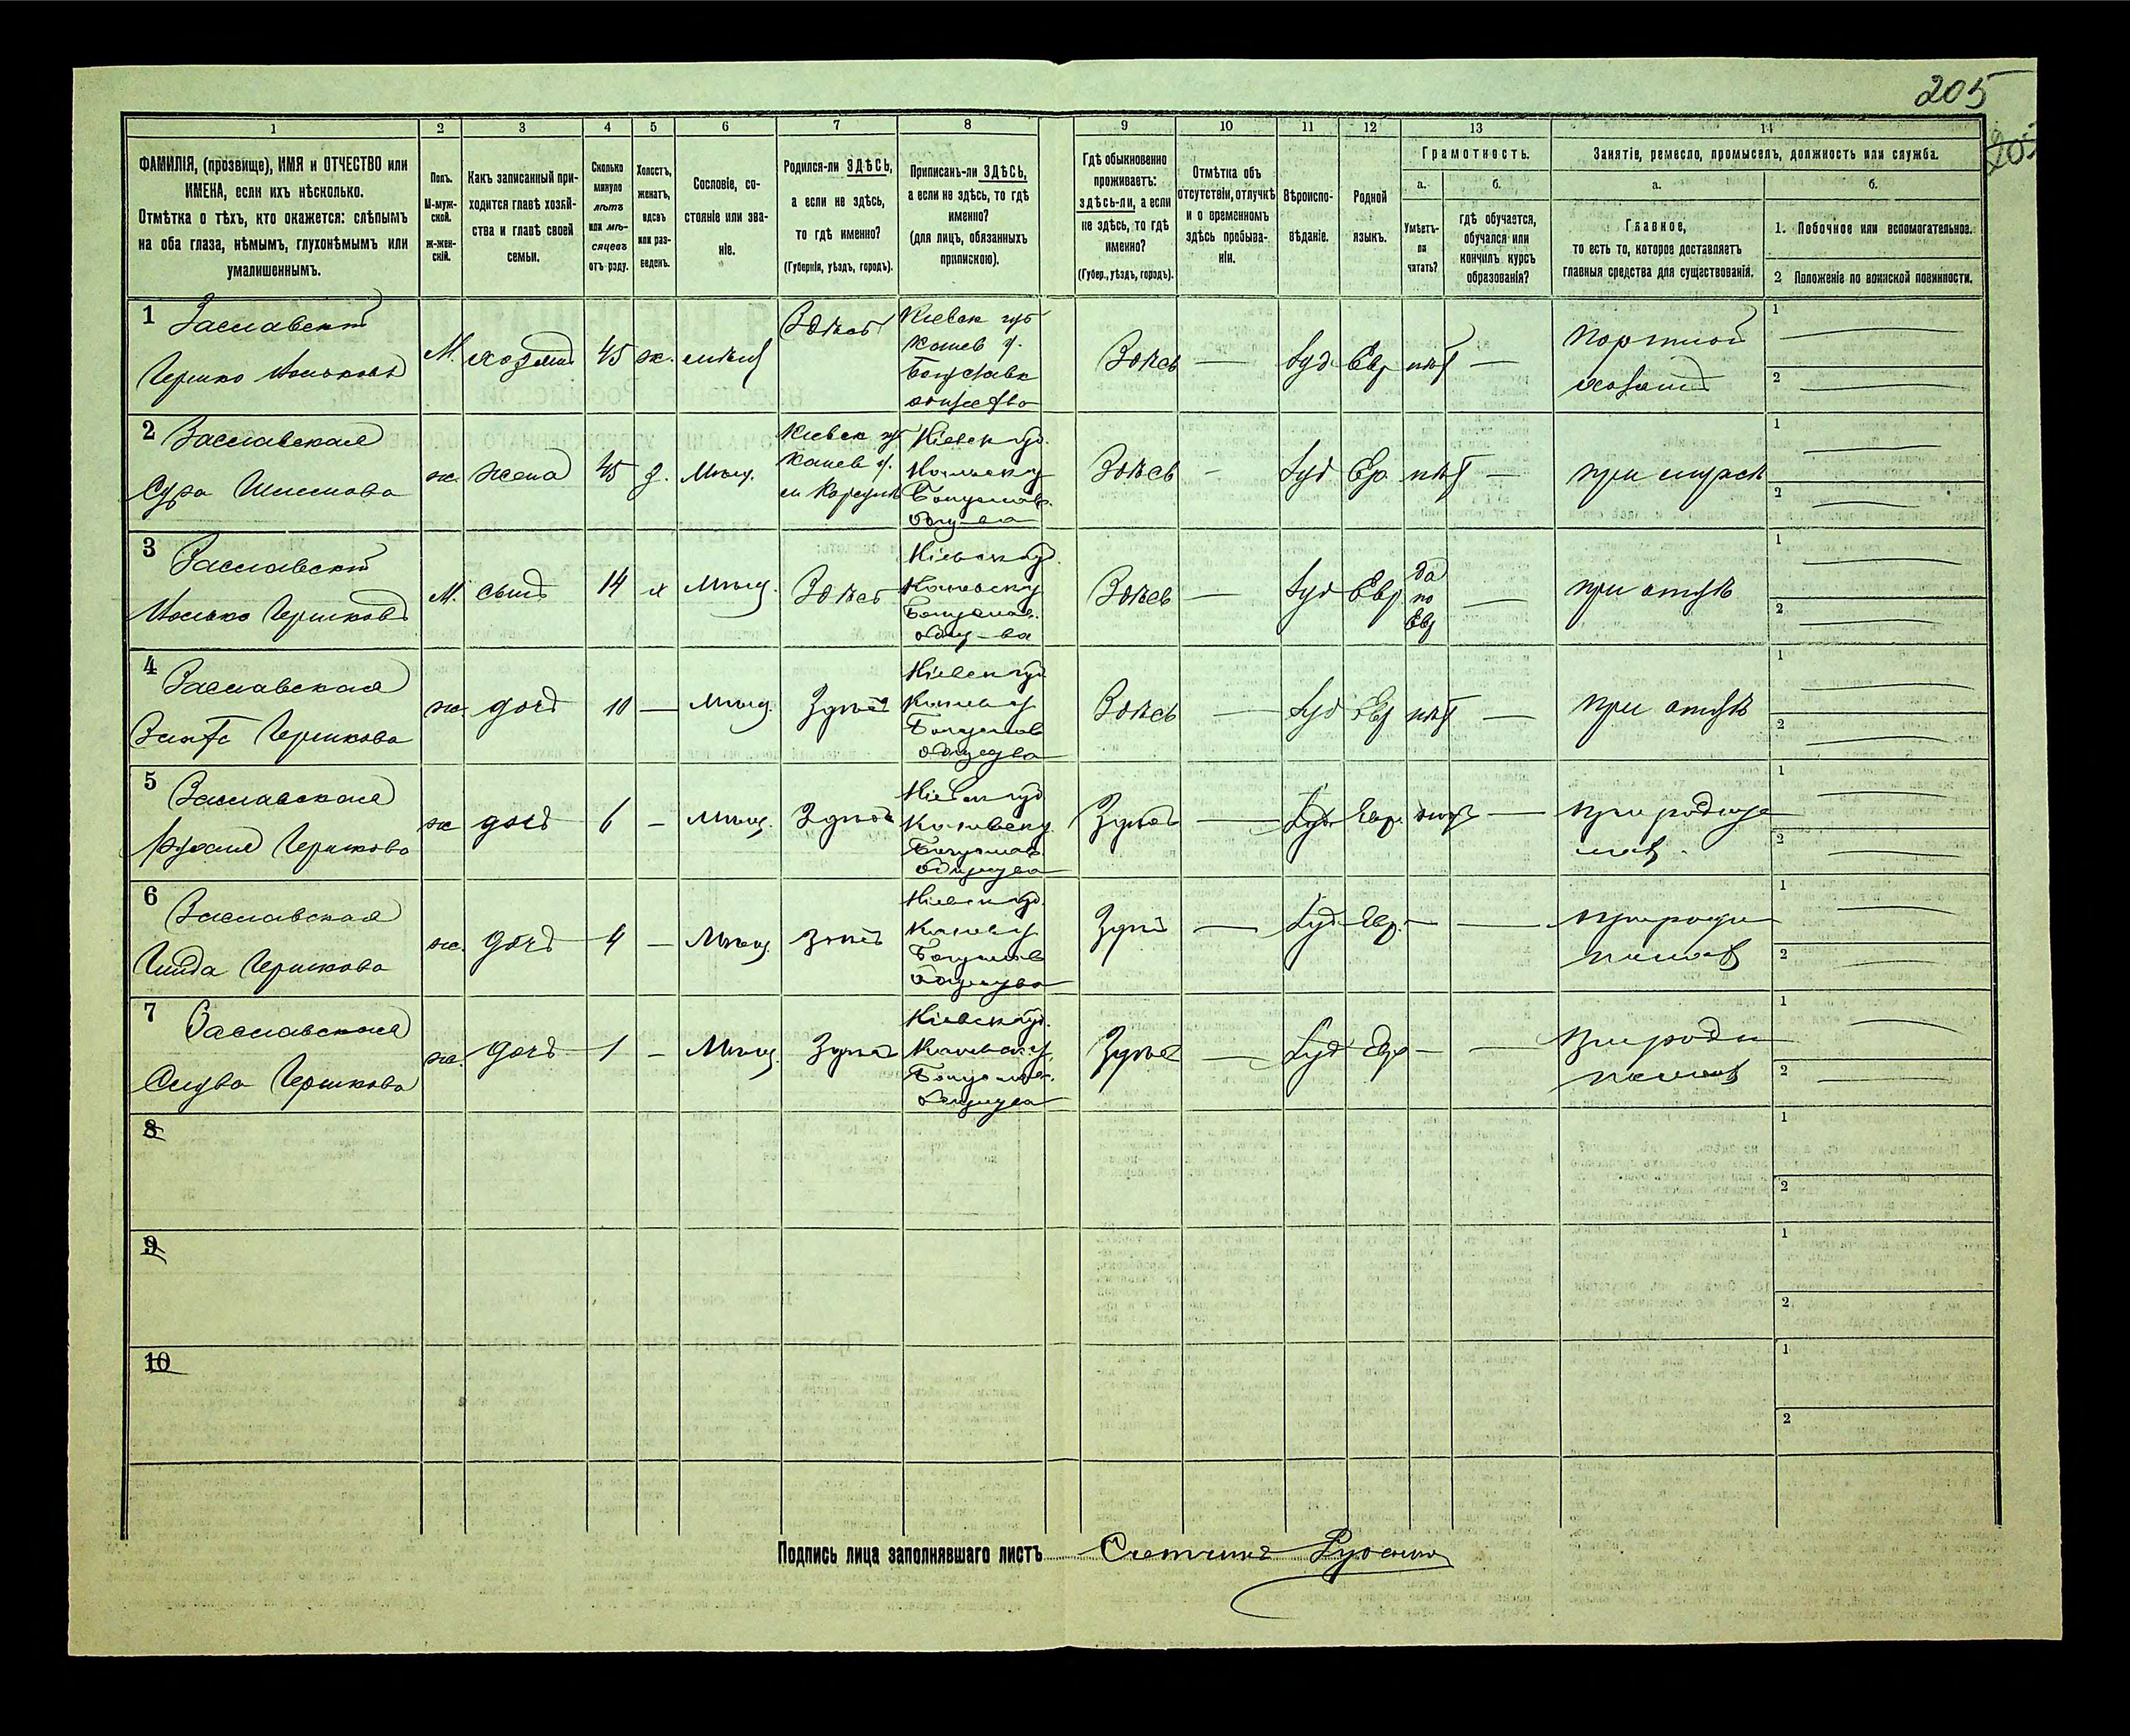 205
205
1 2 3 4 5 6 7 8 9 10 11 12 13 14
ФАМИЛІЯ, (прозвище), ИМЯ и ОТЧЕСТВО или
ИМЕНА, если ихъ нѣсколько.
Отмѣтка о тѣхъ, кто окажется: слѣпымъ
на оба глаза, нѣмымъ, глухонѣмымъ или
умалишеннымъ.
Полъ.
М-муж-
ской.
ж-жен-
скій.
Какъ записанный при-
ходится главѣ хозяй-
ства и главѣ своей
семьи.
Сколько
минуло
лѣтъ
или мѣ-
сяцевъ
отъ роду.
Холостъ,
женатъ,
вдовъ
или раз-
веденъ.
Сословіе, со-
стояніе или зва-
ніе.
Родился-ли ЗДѢСЬ,
а если не здѣсь,
то гдѣ именно?
(Губернія, уѣздъ, городъ).
Приписанъ-ли ЗДѢСЬ,
а если не здѣсь, то гдѣ
именно?
(для лицъ, обязанныхъ
припискою).
Гдѣ обыкновенно
проживаетъ:
здѣсь-ли, а если
не здѣсь, то гдѣ
именно?
(Губер., уѣздъ, городъ).
Отмѣтка объ
отсутствіи, отлучкѣ
и о временномъ
здѣсь пребыва-
ніи.
Вѣроиспо-
вѣданіе.
Родной
языкъ.
Грамотность.
а.
Умѣетъ-
ли
читать?
б.
гдѣ обучается,
обучался или
кончилъ курсъ
образованія?
Занятіе, ремесло, промыселъ, должность или служба.
а.
Главное,
то есть то, которое доставляетъ
главныя средства для существованія.
б.
1. Побочное или вспомогательное.
2 Положеніе по воинской повинности.
1 Заславскій
Гершко Мошковъ
М. хозяинъ 45 ж. мѣщ Здѣсь
Кіевск губ
Канев у.
Богуславк
общество
Здѣсь — Іуд. Евр нѣт —
Портной
хозяинъ
1
2
2 Заславская
Сура
ж. жена 45 з. Мѣщ.
Кіевск губ
Канев у.
Кіевск губ.
Каневск у
Богуслав.
общ-ва
Здѣсь — Іуд Ев. нѣт —
при мужѣ
1
2
3 Заславскій
Мошко Гершковъ
М. сынъ 14 х Мѣщ. Здѣсь
Кіевск губ.
Каневск у
Богуслав.
общ-ва
Здѣсь — Іуд Евр
да
по
Евр
—
при отцѣ
1
2
4 Заславская
Гершкова
ж. дочь 10 — Мѣщ. Здѣсь
Кіевск губ
Канев у
Богуслав
общества
Здѣсь — Іуд Евр нѣт —
при отцѣ
1
2
5 Заславская
Гершкова
ж дочь 6 — Мѣщ. Здѣсь
Кіевск губ
Каневск у.
Богуслав.
общества
Здѣсь — Іуд. Евр. нѣт —
при родите
лях.
1
2
6 Заславская
Гершкова
ж. дочь 4 — Мѣщ. Здѣсь
Кіевск губ.
Канев у
Богуслав
общества
Здѣсь — Іуд Евр. — —
при роди
телях
1
2
7 Заславская
Гершкова
ж. дочь 1 — Мѣщ. Здѣсь
Кіевск губ.
Каневск у.
Богуслав.
общества
Здѣсь — Іуд Евр — —
при роди
телях
1
2
8
1
2
9
1
2
10
1
2
Подпись лица заполнявшаго листъ Счетчикъ